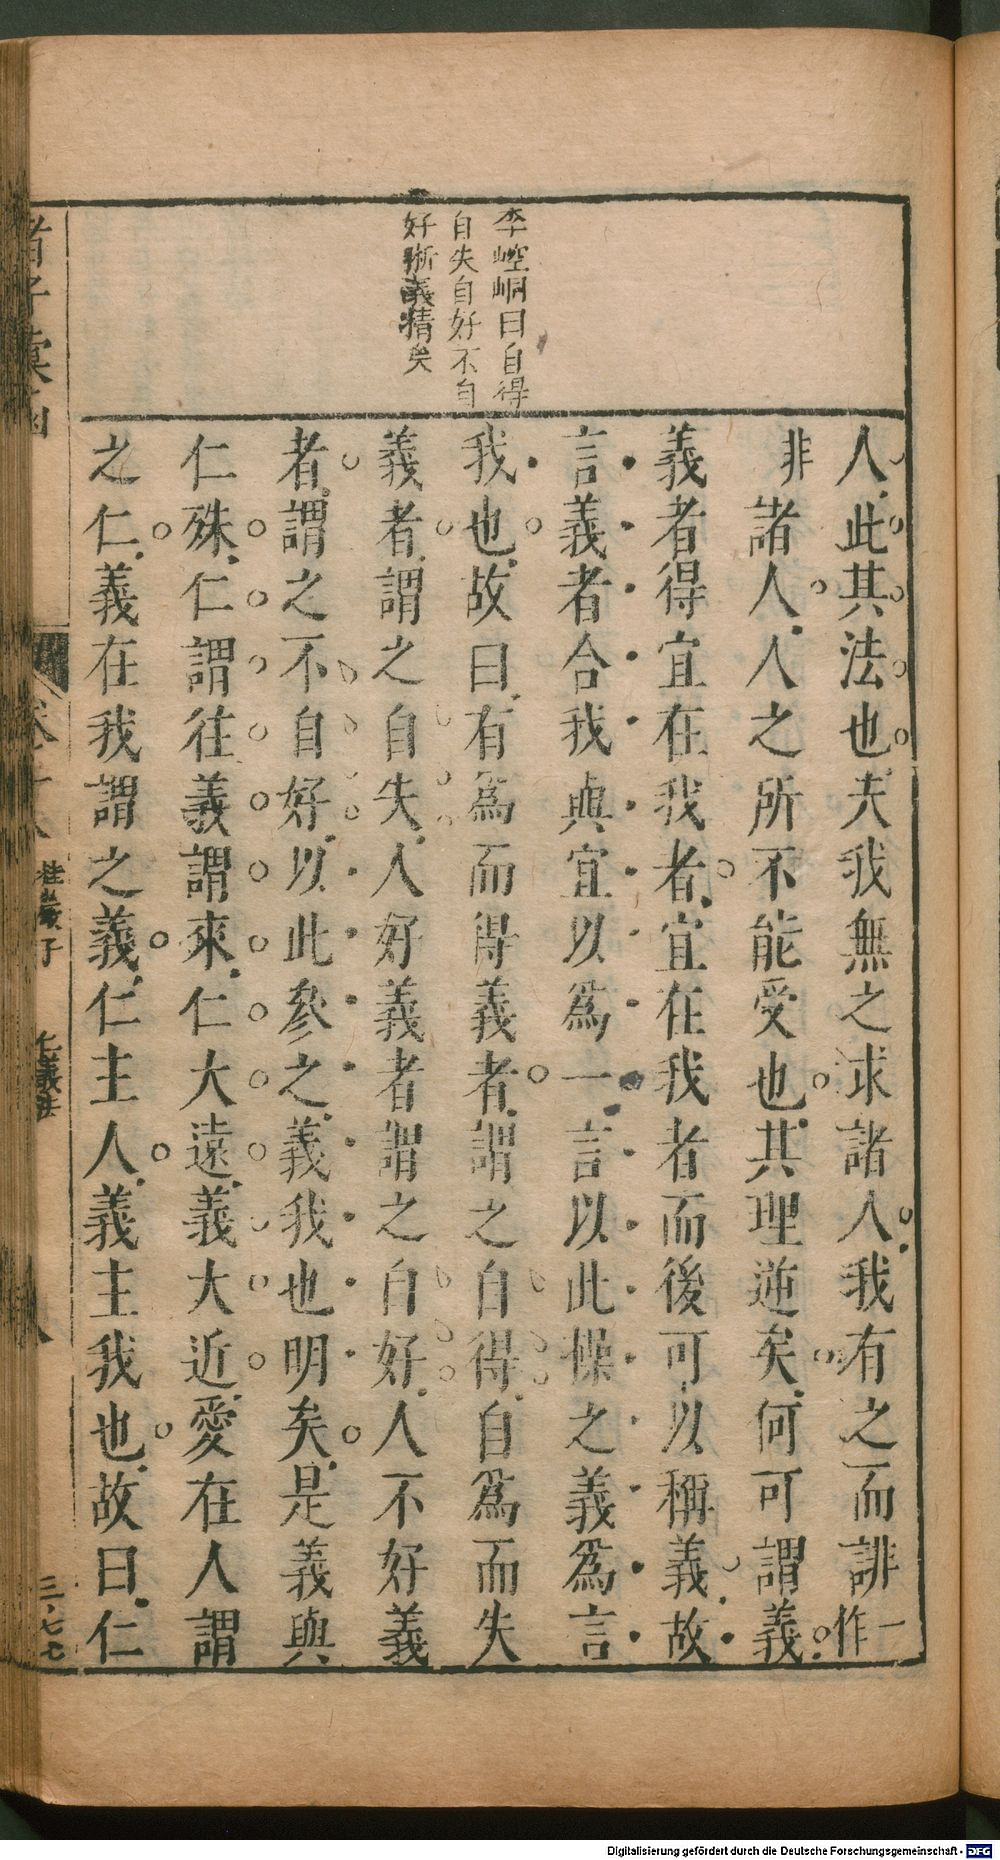 李崆峒曰自得
自失自好不自
好晰義精矣
人此其法也夫我無之求諸人我有之而誹一作
非諸人人之所不能受也其理逆矣何可謂義
義者得宜在我者宜在我者而後可以稱義故
言義者合我與宜以為一言以此操之義為言
我也故曰有為而得義者謂之自得有為而失
義者謂之自失人好義者謂之自好人不好義
者謂之不自好以此參之義我也明矣是義與
仁殊仁謂往義謂來仁大遠義大近愛在人謂
之仁義在我謂之義仁主人義主我也故曰仁
桂巖子
仁義法
三七七
Digitalisierung gefördert durch die Deutsche Forschungsgemeinschaft - DFG